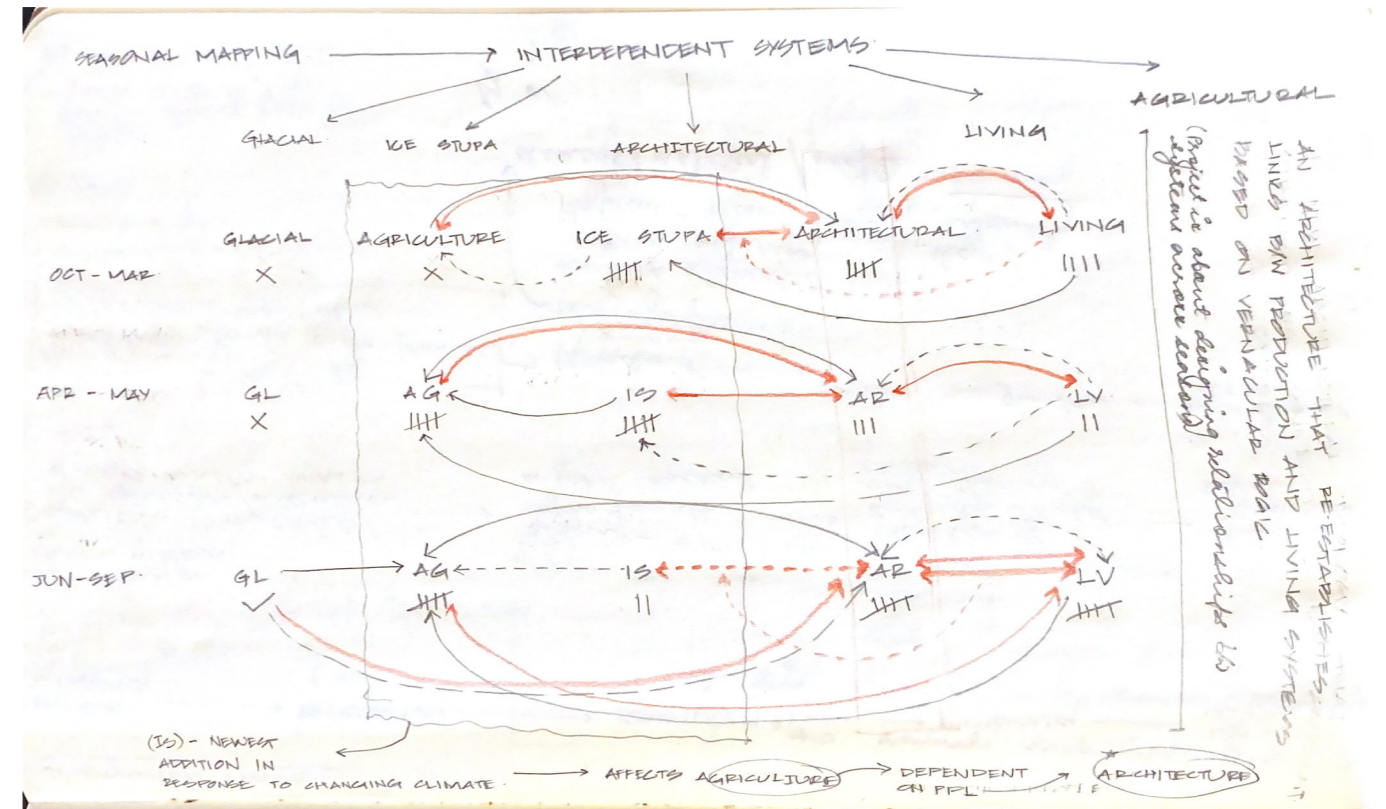 SEASONAL MAPPING → INTERDEPENDENT SYSTEMS
AGRICULTURAL
GLACIAL ICE STUPA ARCHITECTURAL LIVING
GLACIAL AGRICULTURE ICE STUPA ARCHITECTURAL LIVING
OCT - MAR X X
APR - MAY GL AG IS AR LV
X
JUN - SEP. GL AG IS AR LV
AN ARCHITECTURE THAT RE-ESTABLISHES
LINKS B/W PRODUCTION AND LIVING SYSTEMS
BASED ON VERNACULAR
(Project is about designing relationships b/w
systems across seasons)
(IS) - NEWEST
ADDITION IN
RESPONSE TO CHANGING CLIMATE. → AFFECTS AGRICULTURE → DEPENDENT
ON PPL
* ARCHITECTURE